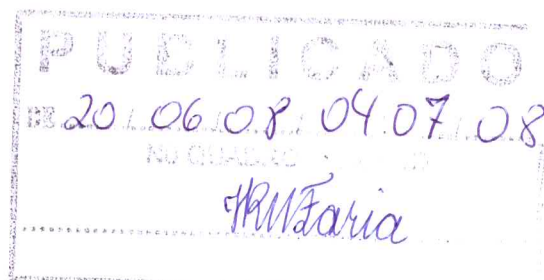 PUBLICADO
DE 20 06 08 04 07 08
NO QUADRO